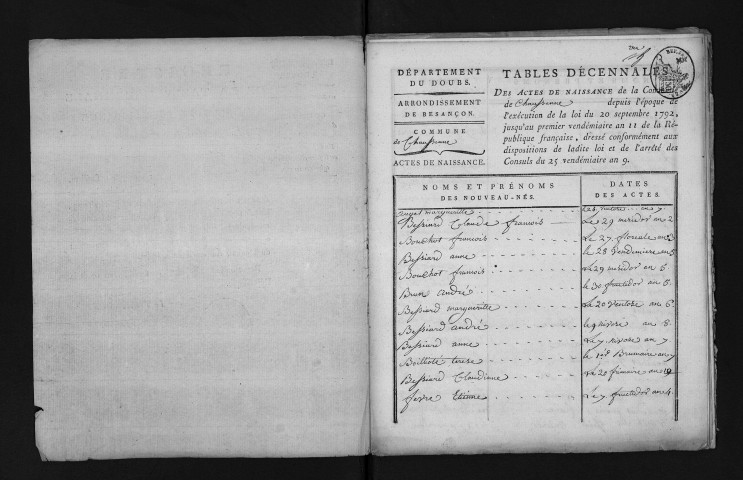 DÉPARTEMENT
DU DOUBS.
ARRONDISSEMENT
DE BESANÇON.
COMMUNE
de Chaussenne
ACTES DE NAISSANCE.
TABLES DÉCENNALES
DES ACTES DE NAISSANCE de la Commune
de Chaussenne depuis l'époque de
l'exécution de la loi du 20 septembre 1792,
jusqu'au premier vendémiaire an 11 de la Ré-
publique française, dressé conformément aux
dispositions de ladite loi et de l'arrêté des
Consuls du 25 vendémiaire an 9.
NOMS ET PRÉNOMS
DES NOUVEAU-NÉS.
DATES
DES ACTES.
margueritte ventose an 7.
Bessiard Claude francois Le 29 mesidor an 2
Bouchot francois Le 27 floreale an 3
Bessiard anne le 28 Vendemiere an 5
Bouchot francois Le 29 mesidor an 5.
Brun andré le 30 fructidor an 6.
Bessiard margueritte Le 20 Ventose an 6.
Bessiard andré le 9 nivose an 8.
Bessiard anne Le 7. nivose an 7
Boilloté terese le 1er Brumaire an 9
Bessiard Claudiene Le 20 frimaire an 10
favre Etienne Le 7 fructidor an 4.